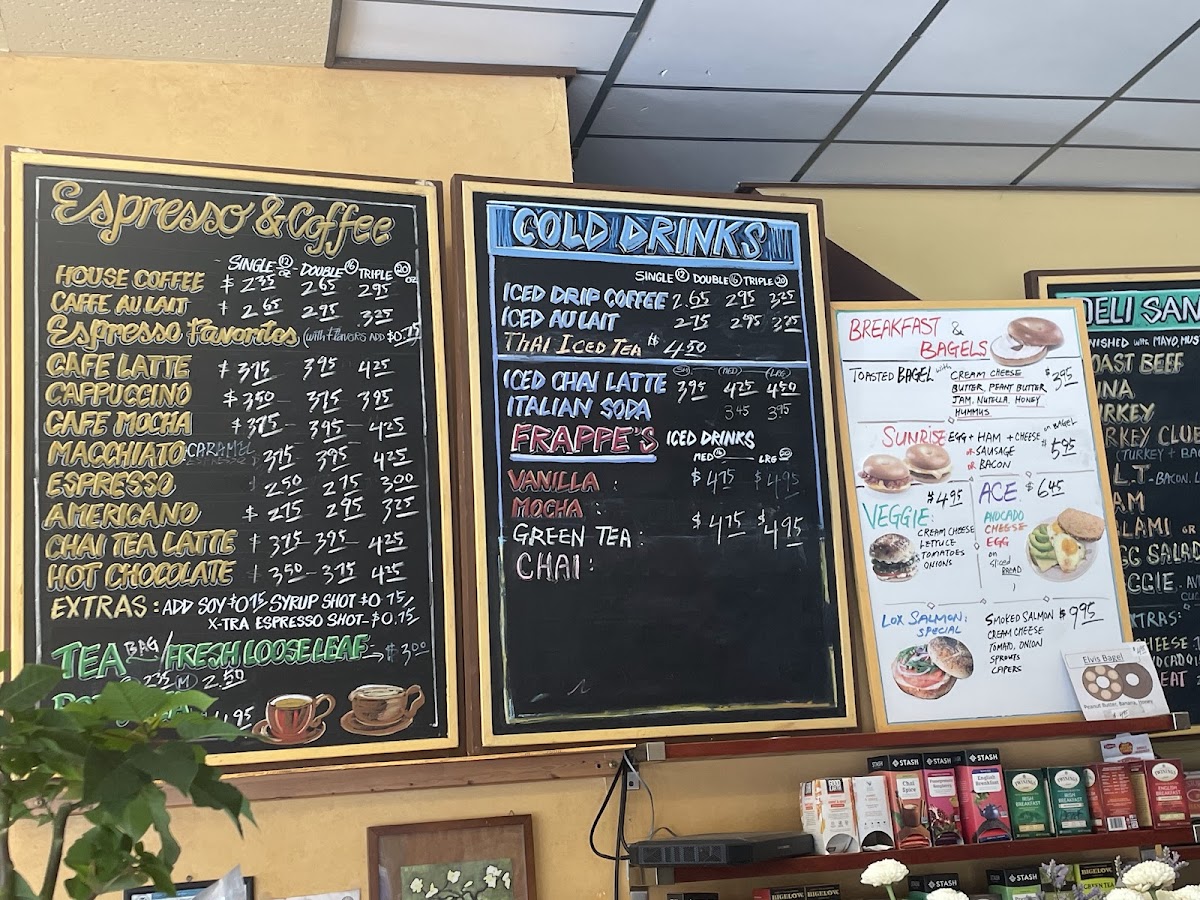 Espresso & Coffee
SINGLE 12 OZ DOUBLE 16 TRIPLE 20 OZ
HOUSE COFFEE $2.35 2.65 2.95
CAFFE AU LAIT 2.65 2.95 3.25
Espresso Favorites (with FLAVORS ADD $0.75
CAFE LATTE $3.75 3.95 4.25
CAPPUCCINO $3.50 3.75 3.95
CAFE MOCHA $3.75 3.95 4.25
MACCHIATO CARAMEL 3.75 3.95 4.25
ESPRESSO 2.50 2.75 3.00
AMERICANO $2.75 2.95 3.25
CHAI TEA LATTE $3.75 3.95 4.25
HOT CHOCOLATE 3.50 3.75 4.25
EXTRAS: ADD SOY $0.75 SYRUP SHOT $0.75/
X-TRA ESPRESSO SHOT- $0.75
TEA BAG/FRESH LOOSE LEAF → $3.00
2.35 M 2.50
4.95
COLD DRINKS
SINGLE 12 DOUBLE 16 TRIPLE 20
ICED DRIP COFFEE 2.65 2.95 3.25
ICED AU LAIT 2.75 2.95 3.25
THAI ICED TEA $4.50
(SM) (MED) (LRG)
ICED CHAI LATTE 3.95 4.25 4.50
ITALIAN SODA 3.45 3.95
FRAPPE'S ICED DRINKS
MED 16 LRG 20
VANILLA : $4.75 $4.95
MOCHA :
GREEN TEA : $4.75 $4.95
CHAI :
BREAKFAST &
BAGELS
TOASTED BAGEL with CREAM CHEESE $3.95
BUTTER, PEANT BUTTER
JAM, NUTELLA, HONEY
HUMMUS
SUNRISE EGG + HAM + CHEESE on BAGEL $5.95
OR SAUSAGE
OR BACON
$4.95
VEGGIE:
CREAM CHEESE
LETTUCE
TOMATOES
ONIONS
ACE. $6.45
AVOCADO
CHEESE
EGG
on
sliced
BREAD
LOX SALMON:
SPECIAL
SMOKED SALMON $9.95
CREAM CHEESE
TOMATO, ONION
SPROUTS
CAPERS
Elvis Bagel
Peanut Butter, Banana, Honey
DELI SAN
NISHED with MAYO, MUS
OAST BEEF
UNA
URKEY
RKEY CLUB
(TURKEY + BA
L.T - BACON, L
AM
ALAMI OR
GG SALAD
GGIE
TRAS:
CHEESE
VOCADO
EAT
STASH
STASH
STASH
Chai Spice
English Breakfast
TWININGS
IRISH BREAKFAST
TWININGS
IRISH BREAKFAST
TWININGS
ENGLISH BREAKFAST
BIGELOW
BIGELOW
STASH
STASH
BIGELOW
GREEN TEA